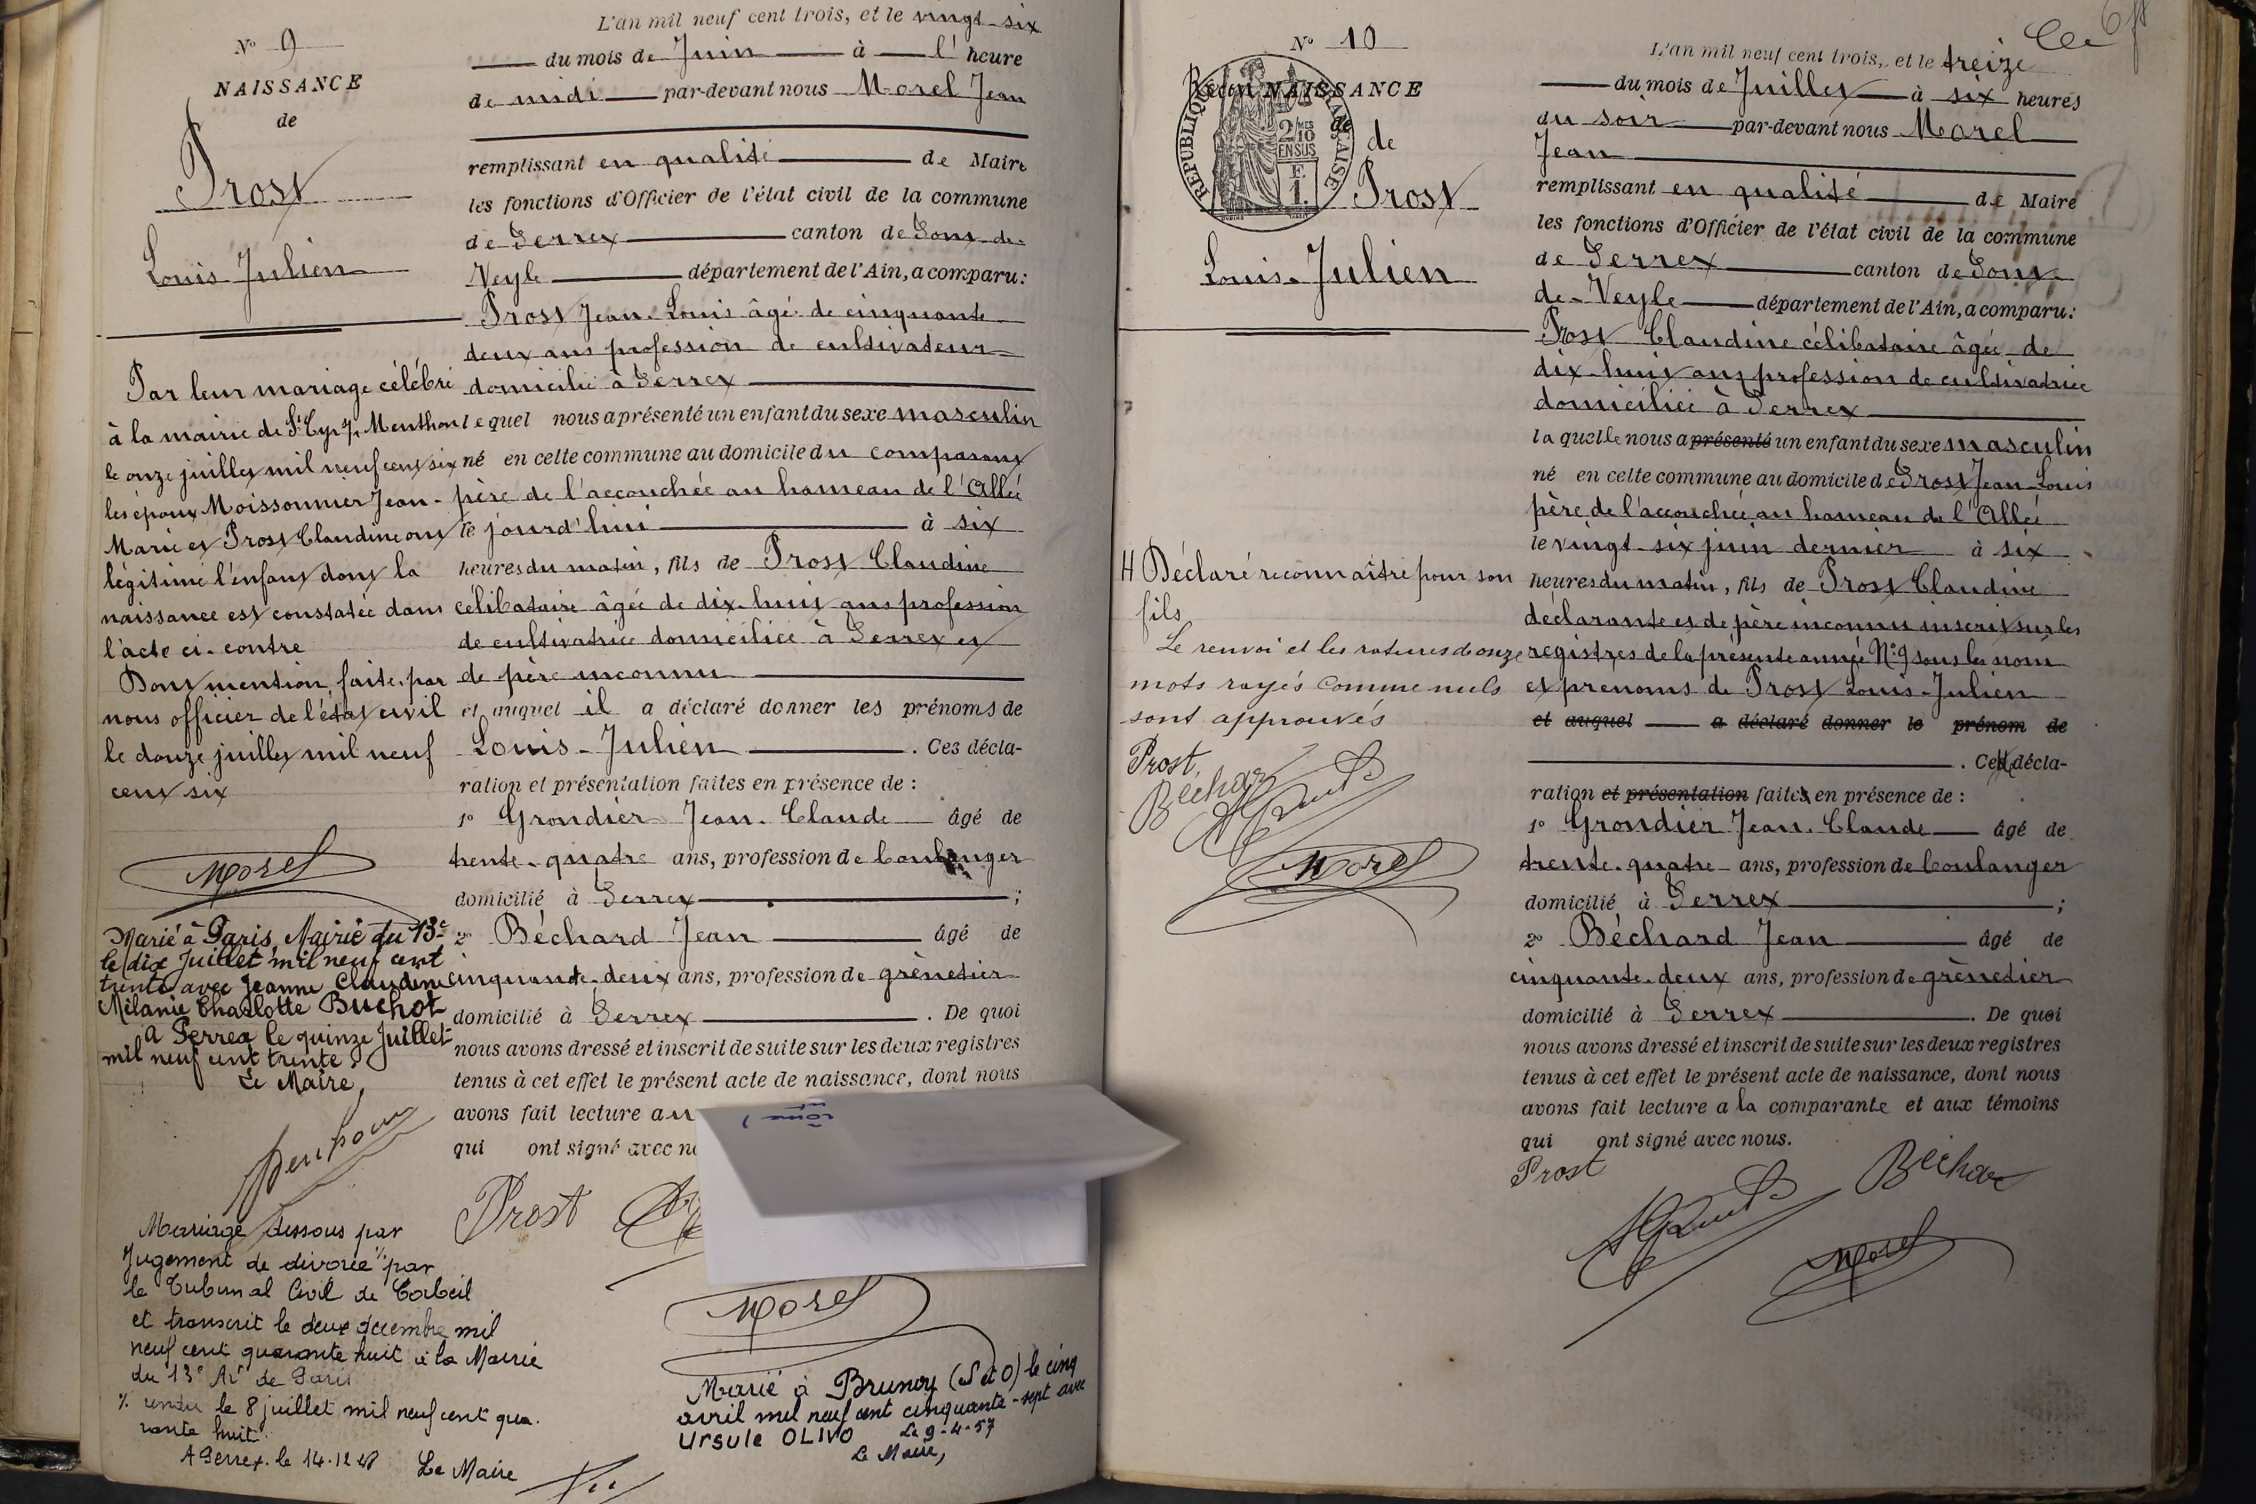 N° 9
NAISSANCE
de
Prost
Louis Julien
L'an mil neuf cent trois, et le vingt-six
du mois de Juin à l'heure
de midi par-devant nous Morel Jean
remplissant en qualité de Maire
les fonctions d'Officier de l'état civil de la commune
de Perrex canton de Pont-de-
Veyle département de l'Ain, a comparu:
Prost Jean-Louis âgé de cinquante
deux ans profession de cultivateur
domicilié à Perrex
lequel nous a présenté un enfant du sexe masculin
né en cette commune au domicile du comparant
père de l'accouchée au hameau de l'Allée
le jourd'hui à six
heures du matin, fils de Prost Claudine
célibataire âgée de dix-huit ans profession
de cultivatrice domiciliée à Perrex et
de père inconnu
et auquel il a déclaré donner les prénoms de
Louis-Julien . Ces décla-
ration et présentation faites en présence de :
1° Grondier Jean-Claude âgé de
trente-quatre ans, profession de boulanger
domicilié à Perrex ;
2° Béchard Jean âgé de
cinquante-deux ans, profession de grènetier
domicilié à Perrex . De quoi
nous avons dressé et inscrit de suite sur les deux registres
tenus à cet effet le présent acte de naissance, dont nous
avons fait lecture au
qui ont signé avec
Prost
Morel
Par leur mariage célébré
à la mairie de St Cyr s/ Menthon
le onze juillet mil neuf cent six
les époux Moissonnier Jean-
Marie et Prost Claudine ont
légitimé l'enfant dont la
naissance est constatée dans
l'acte ci-contre
Dont mention faite par
nous officier de l'état civil
le douze juillet mil neuf
cent six
Morel
Marié à Paris, Mairie du 13e
le dix Juillet mil neuf cent
trente avec Jeanne Claudine
Mélanie Charlotte Buchot
A Perrex le quinze Juillet
mil neuf cent trente
Le Maire,
Mariage dissous par
Jugement de divorce % par
le Tribunal Civil de Corbeil
et transcrit le deux décembre mil
neuf cent quarante huit à la Mairie
du 13e Art de Paris
% rendu le 8 juillet mil neuf cent qua-
rante huit.
A Perrex, le 14.12.48 Le Maire
Marié à Brunoy (S et O) le cinq
avril mil neuf cent cinquante-sept avec
Ursule OLIVO Le 9-4-57
Le Maire,
N° 10
Recon NAISSANCE
de
de
RÉPUBLIQUE FRANÇAISE
2/10 MES
EN SUS
F.
1.
Prost
Louis-Julien
L'an mil neuf cent trois, et le treize
du mois de Juillet à six heures
du soir par-devant nous Morel
Jean
remplissant en qualité de Maire
les fonctions d'Officier de l'état civil de la commune
de Perrex canton de Pont-
de-Veyle département de l'Ain, a comparu:
Prost Claudine célibataire âgée de
dix-huit ans profession de cultivatrice
domiciliée à Perrex
laquelle nous a présenté un enfant du sexe masculin
né en cette commune au domicile de Prost Jean-Louis
père de l'accouchée au hameau de l'Allée
le vingt-six juin dernier à six
heures du matin, fils de Prost Claudine
déclarante et de père inconnu inscrit sur les
registres de la présente année N° 9 sous les nom
et prénoms de Prost Louis-Julien
et auquel a déclaré donner le prénom de
. Cette décla-
ration et présentation faites en présence de :
1° Grondier Jean-Claude âgé de
trente-quatre ans, profession de boulanger
domicilié à Perrex ;
2° Béchard Jean âgé de
cinquante-deux ans, profession de grènetier
domicilié à Perrex . De quoi
nous avons dressé et inscrit de suite sur les deux registres
tenus à cet effet le présent acte de naissance, dont nous
avons fait lecture a la comparante et aux témoins
qui ont signé avec nous.
Prost
Béchard
Morel
H Déclaré reconnaître pour son
fils
Le renvoi et les ratures de onze
mots rayés comme nuls
sont approuvés
Prost
Béchard
Morel